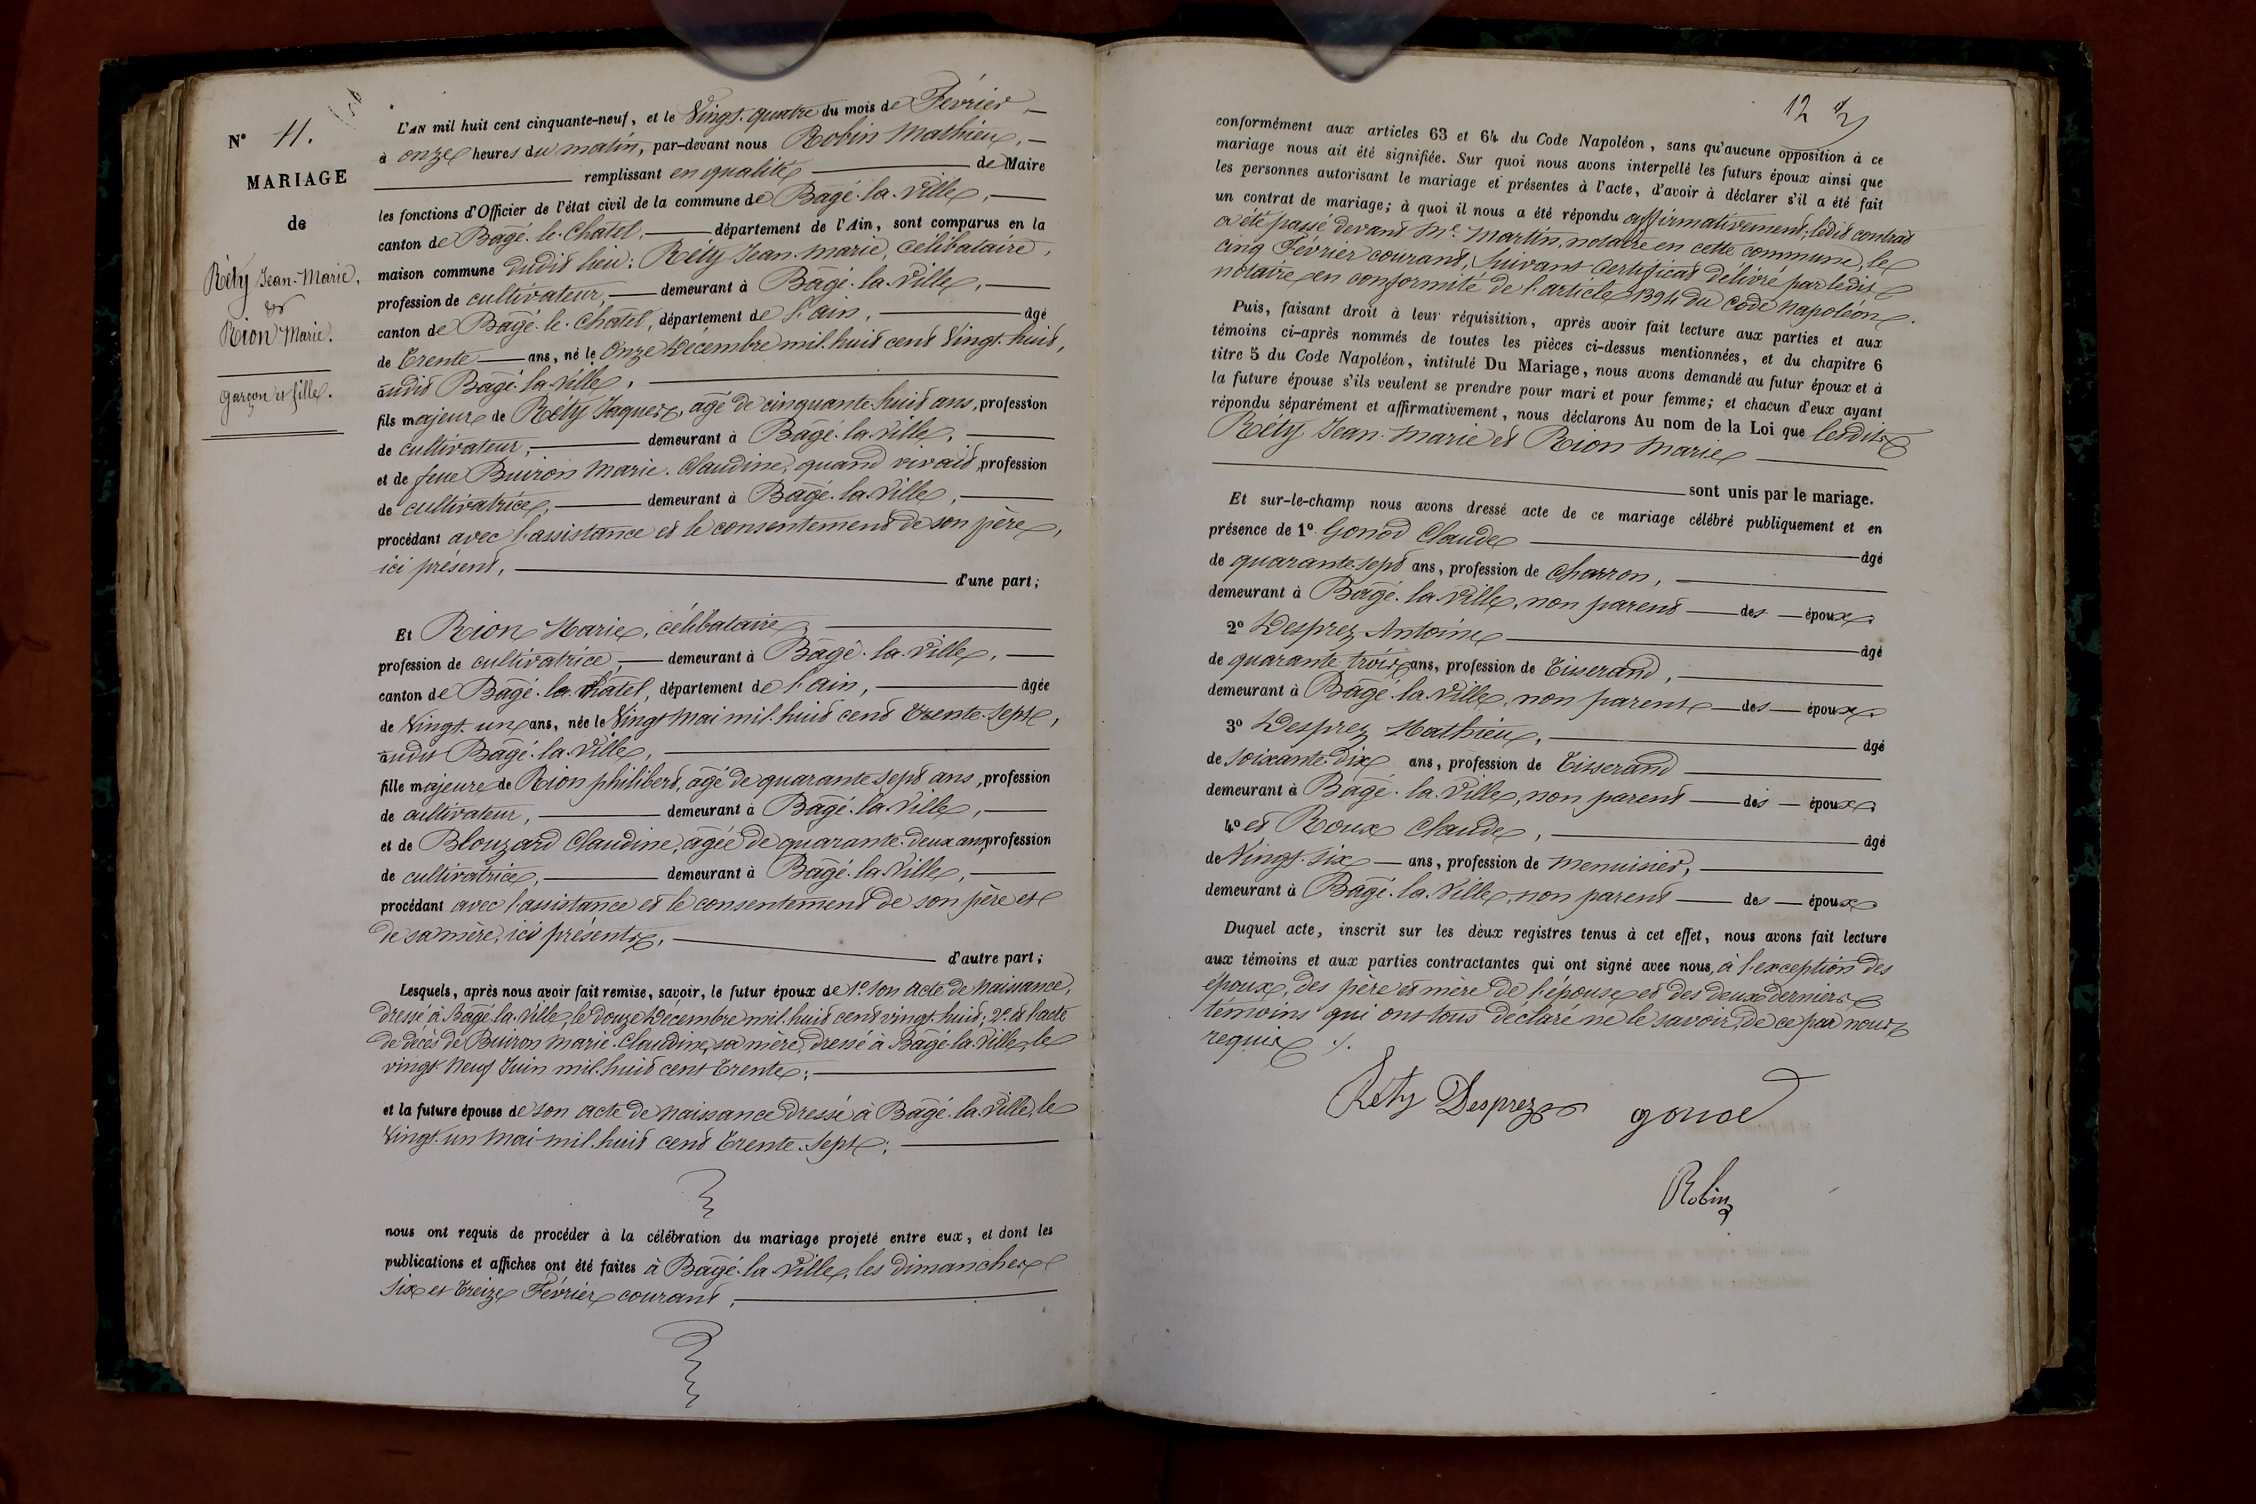 N° 11.
MARIAGE
de
Réty Jean-Marie.
et
Rion Marie.
garçon et fille.
L'AN mil huit cent cinquante-neuf, et le Vingt-quatre du mois de Février
à onze heures du matin, par-devant nous Robin Mathieu,
remplissant en qualité de Maire
les fonctions d'Officier de l'état civil de la commune de Bâgé-la-Ville,
canton de Bâgé-le-Chatel, département de l'Ain, sont comparus en la
maison commune dudit lieu: Réty Jean-Marie, Célibataire,
profession de cultivateur, demeurant à Bâgé-la-Ville,
canton de Bâgé-le-Chatel, département de l'ain, âgé
de Trente ans, né le Onze Décembre mil-huit cent Vingt-huit,
audit Bâgé-la-Ville,
fils majeur de Réty Jaques, âgé de cinquante-huit ans, profession
de cultivateur, demeurant à Bâgé-la-Ville,
et de feue Buiron Marie-Claudine, quand vivait, profession
de cultivatrice, demeurant à Bâgé-la-Ville,
procédant avec l'assistance et le consentement de son père,
ici présent, d'une part;
Et Rion Marie, célibataire,
profession de cultivatrice, demeurant à Bâgé-la-Ville,
canton de Bâgé-le-Chatel, département de l'ain, âgée
de Vingt-un ans, née le Vingt Mai mil-huit cent Trente-sept,
audit Bâgé-la-Ville,
fille majeure de Rion philibert, âgé de quarante-sept ans, profession
de cultivateur, demeurant à Bâgé-la-Ville,
et de Blouzard Claudine, âgée de quarante-deux ans, profession
de cultivatrice, demeurant à Bâgé-la-Ville,
procédant avec l'assistance et le consentement de son père et
de sa mère, ici présents, d'autre part;
Lesquels, après nous avoir fait remise, savoir, le futur époux de 1° son acte de Naissance,
dressé à Bâgé-la-Ville, le douze Décembre mil-huit cent vingt-huit; 2° et l'acte
de décès de Buiron Marie-Claudine, sa mère, dressé à Bâgé-la-Ville, le
vingt-Neuf Juin mil-huit cent Trente;
et la future épouse de son acte de naissance dressé à Bâgé-la-Ville, le
Vingt-un Mai mil-huit cent Trente-sept;
nous ont requis de procéder à la célébration du mariage projeté entre eux, et dont les
publications et affiches ont été faites à Bâgé-la-Ville, les dimanches
Six et Treize Février courant,
12
conformément aux articles 63 et 64 du Code Napoléon, sans qu'aucune opposition à ce
mariage nous ait été signifiée. Sur quoi nous avons interpellé les futurs époux ainsi que
les personnes autorisant le mariage et présentes à l'acte, d'avoir à déclarer s'il a été fait
un contrat de mariage; à quoi il nous a été répondu affirmativement; ledit contrat
a été passé devant Me. Martin, notaire en cette commune, le
cinq Février courant, suivant certificat délivré par ledit
notaire en conformité de l'article 1394 du Code Napoléon.
Puis, faisant droit à leur réquisition, après avoir fait lecture aux parties et aux
témoins ci-après nommés de toutes les pièces ci-dessus mentionnées, et du chapitre 6
titre 5 du Code Napoléon, intitulé Du Mariage, nous avons demandé au futur époux et à
la future épouse s'ils veulent se prendre pour mari et pour femme; et chacun d'eux ayant
répondu séparément et affirmativement, nous déclarons Au nom de la Loi que lesdits
Réty Jean-Marie et Rion Marie
sont unis par le mariage.
Et sur-le-champ nous avons dressé acte de ce mariage célébré publiquement et en
présence de 1° Gonod Claude âgé
de quarante-sept ans, profession de Charron,
demeurant à Bâgé-la-Ville, non parent des époux.
2° Desprez Antoine âgé
de quarante-trois ans, profession de Tisserand,
demeurant à Bâgé-la-Ville, non parent des époux.
3° Desprez Mathieu, âgé
de soixante-dix ans, profession de Tisserand
demeurant à Bâgé-la-Ville, non parent des époux.
4° et Roux Claude, âgé
de Vingt-six ans, profession de menuisier,
demeurant à Bâgé-la-Ville, non parent des époux.
Duquel acte, inscrit sur les deux registres tenus à cet effet, nous avons fait lecture
aux témoins et aux parties contractantes qui ont signé avec nous, à l'exception des
époux, des père et mère de l'épouse et des deux derniers
témoins qui ont tous déclaré ne le savoir, de ce par nous
requis ./.
Réty Desprez gonod
Robin